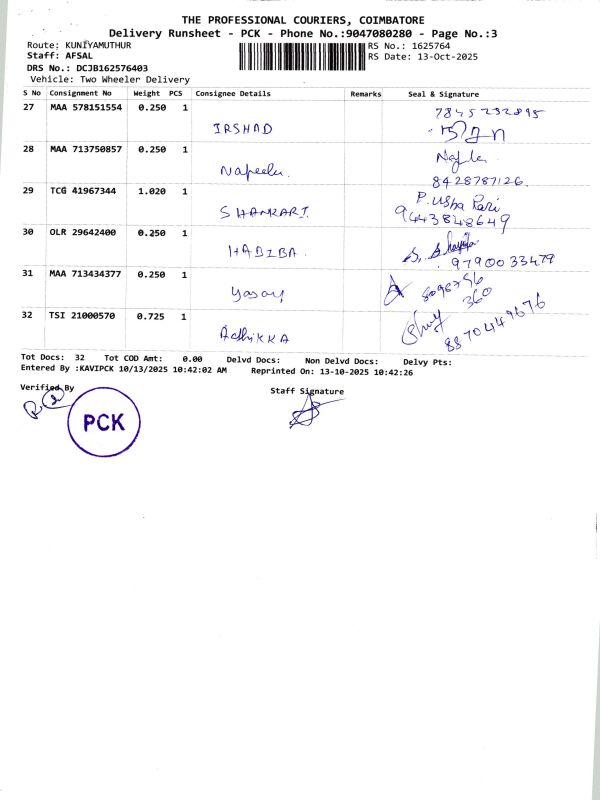 THE PROFESSIONAL COURIERS, COIMBATORE
Delivery Runsheet - PCK - Phone No.:9047080280 - Page No.:3
Route: KUNIYAMUTHUR RS No.: 1625764
Staff: AFSAL RS Date: 13-Oct-2025
DRS No.: DCJB162576403
Vehicle: Two Wheeler Delivery
S No Consignment No Weight PCS Consignee Details Remarks Seal & Signature
27 MAA 578151554 0.250 1 7845232895
IRSHAD
28 MAA 713750857 0.250 1
Napeelu. 8428787126.
29 TCG 41967344 1.020 1 P. Usha Rari
SHANKARI. 9443848649
30 OLR 29642400 0.250 1
HABIBA. 9790033479
31 MAA 713434377 0.250 1 8098756
360
32 TSI 21000570 0.725 1
AdhikKA 8870449676
Tot Docs: 32 Tot COD Amt: 0.00 Delvd Docs: Non Delvd Docs: Delvy Pts:
Entered By :KAVIPCK 10/13/2025 10:42:02 AM Reprinted On: 13-10-2025 10:42:26
Verified By Staff Signature
PCK